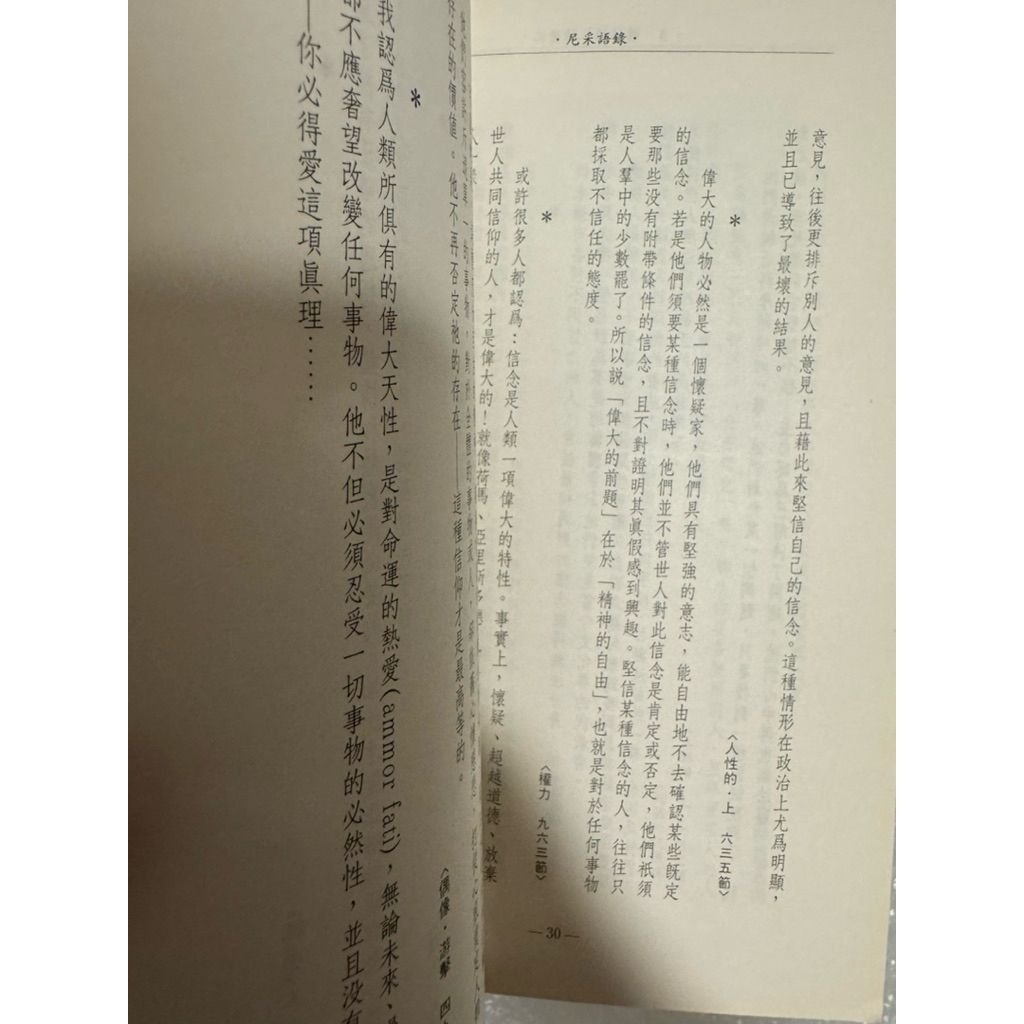 ·尼采語錄·
意見，往後更排斥別人的意見，且藉此來堅信自己的信念。這種情形在政治上尤爲明顯，
並且已導致了最壞的結果。
〈人性的·上 六三五節〉
*
偉大的人物必然是一個懷疑家，他們具有堅強的意志，能自由地不去確認某些旣定
的信念。若是他們須要某種信念時，他們並不管世人對此信念是肯定或否定，他們祇須
要那些没有附帶條件的信念，且不對證明其眞假感到興趣。堅信某種信念的人，往往只
是人羣中的少數罷了。所以説「偉大的前題」在於「精神的自由」，也就是對於任何事物
都採取不信任的態度。
〈權力 九六三節〉
*
或許很多人都認爲：信念是人類一項偉大的特性。事實上，懷疑、超越道德、放棄
世人共同信仰的人，才是偉大的！就像荷馬、亞里斯
—30—
存在的價值。他不再否定祂的存在——這種信仰才是最高等的。
〈偶像·游擊 四
*
我認爲人類所俱有的偉大天性，是對命運的熱愛(ammor fati)，無論未來、
都不應奢望改變任何事物。他不但必須忍受一切事物的必然性，並且没有
——你必得愛這項眞理……